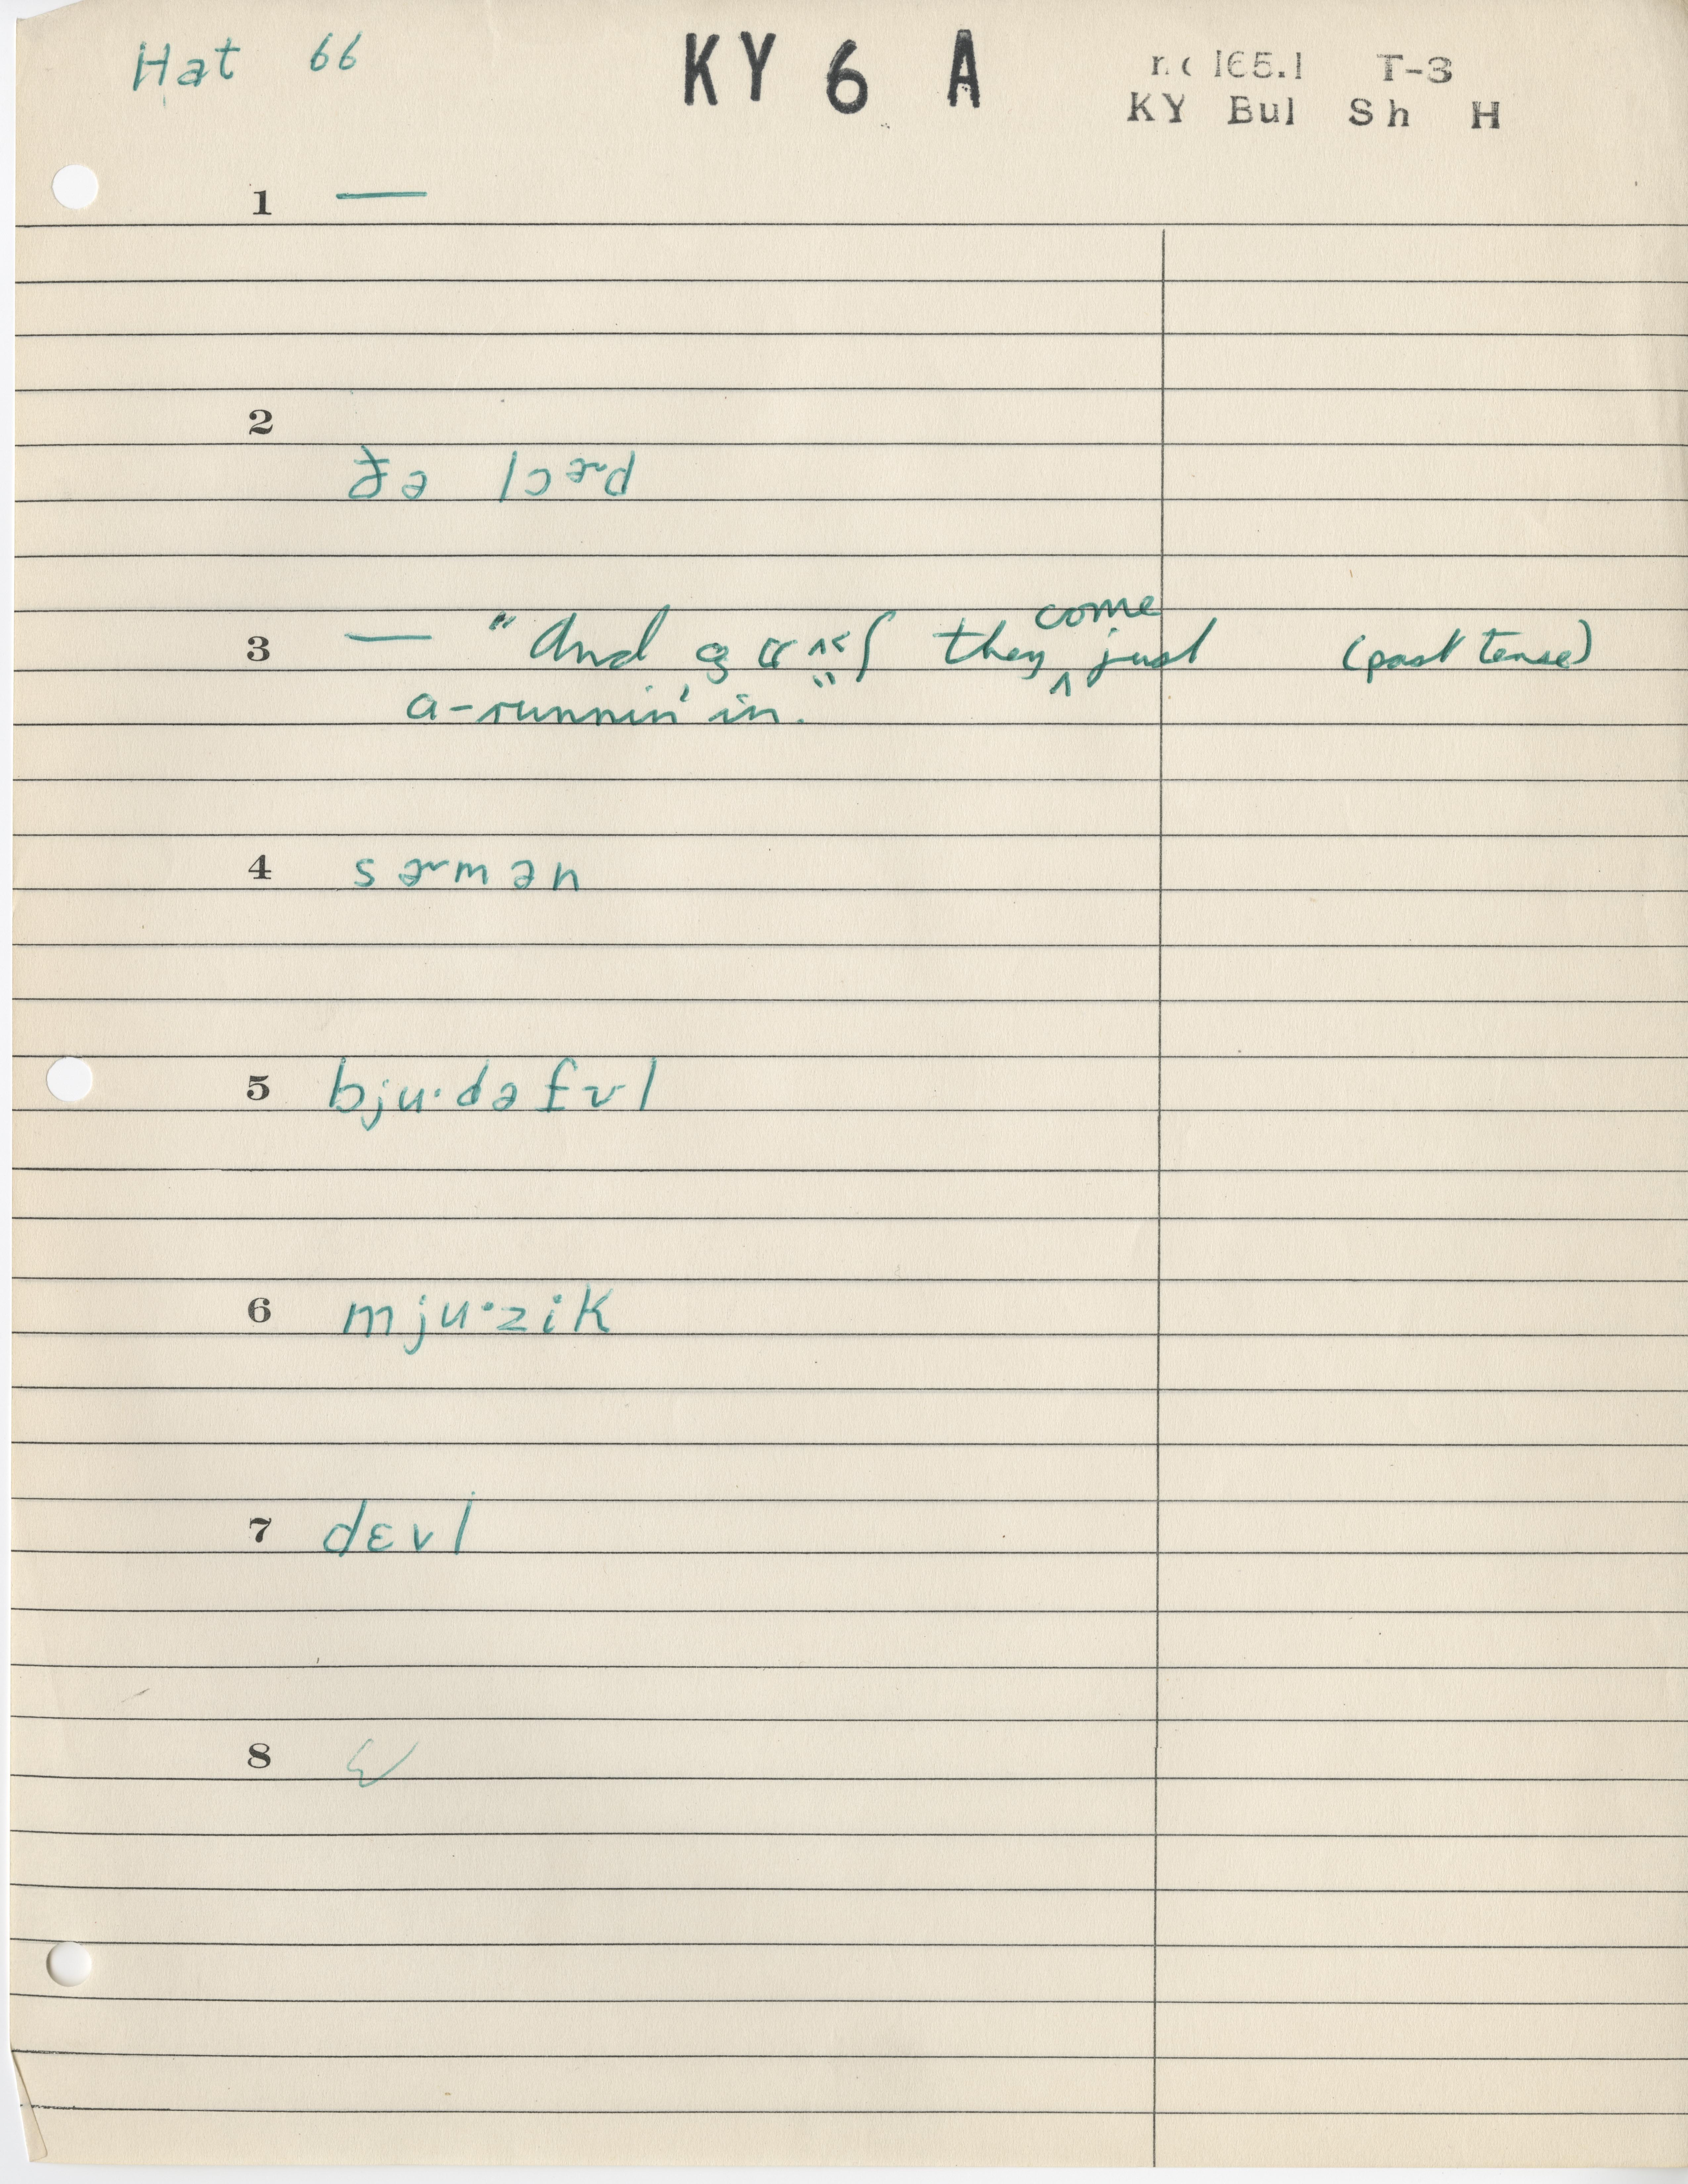 Hat 66
KY 6 A
165.1 T-3
KY Bul Sh H
1 —
2
ðə lɔɚd
3 — "And they come just (past tense)
a-runnin' in."
4 sɚmən
5 bju·dəfʊl
6 mju·zik
7 dɛvl
8